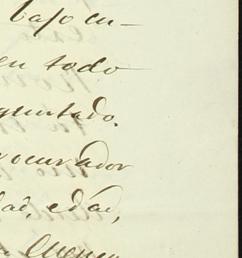 bajo cu-
en todo
guntado.
rocurador
dad, edad,